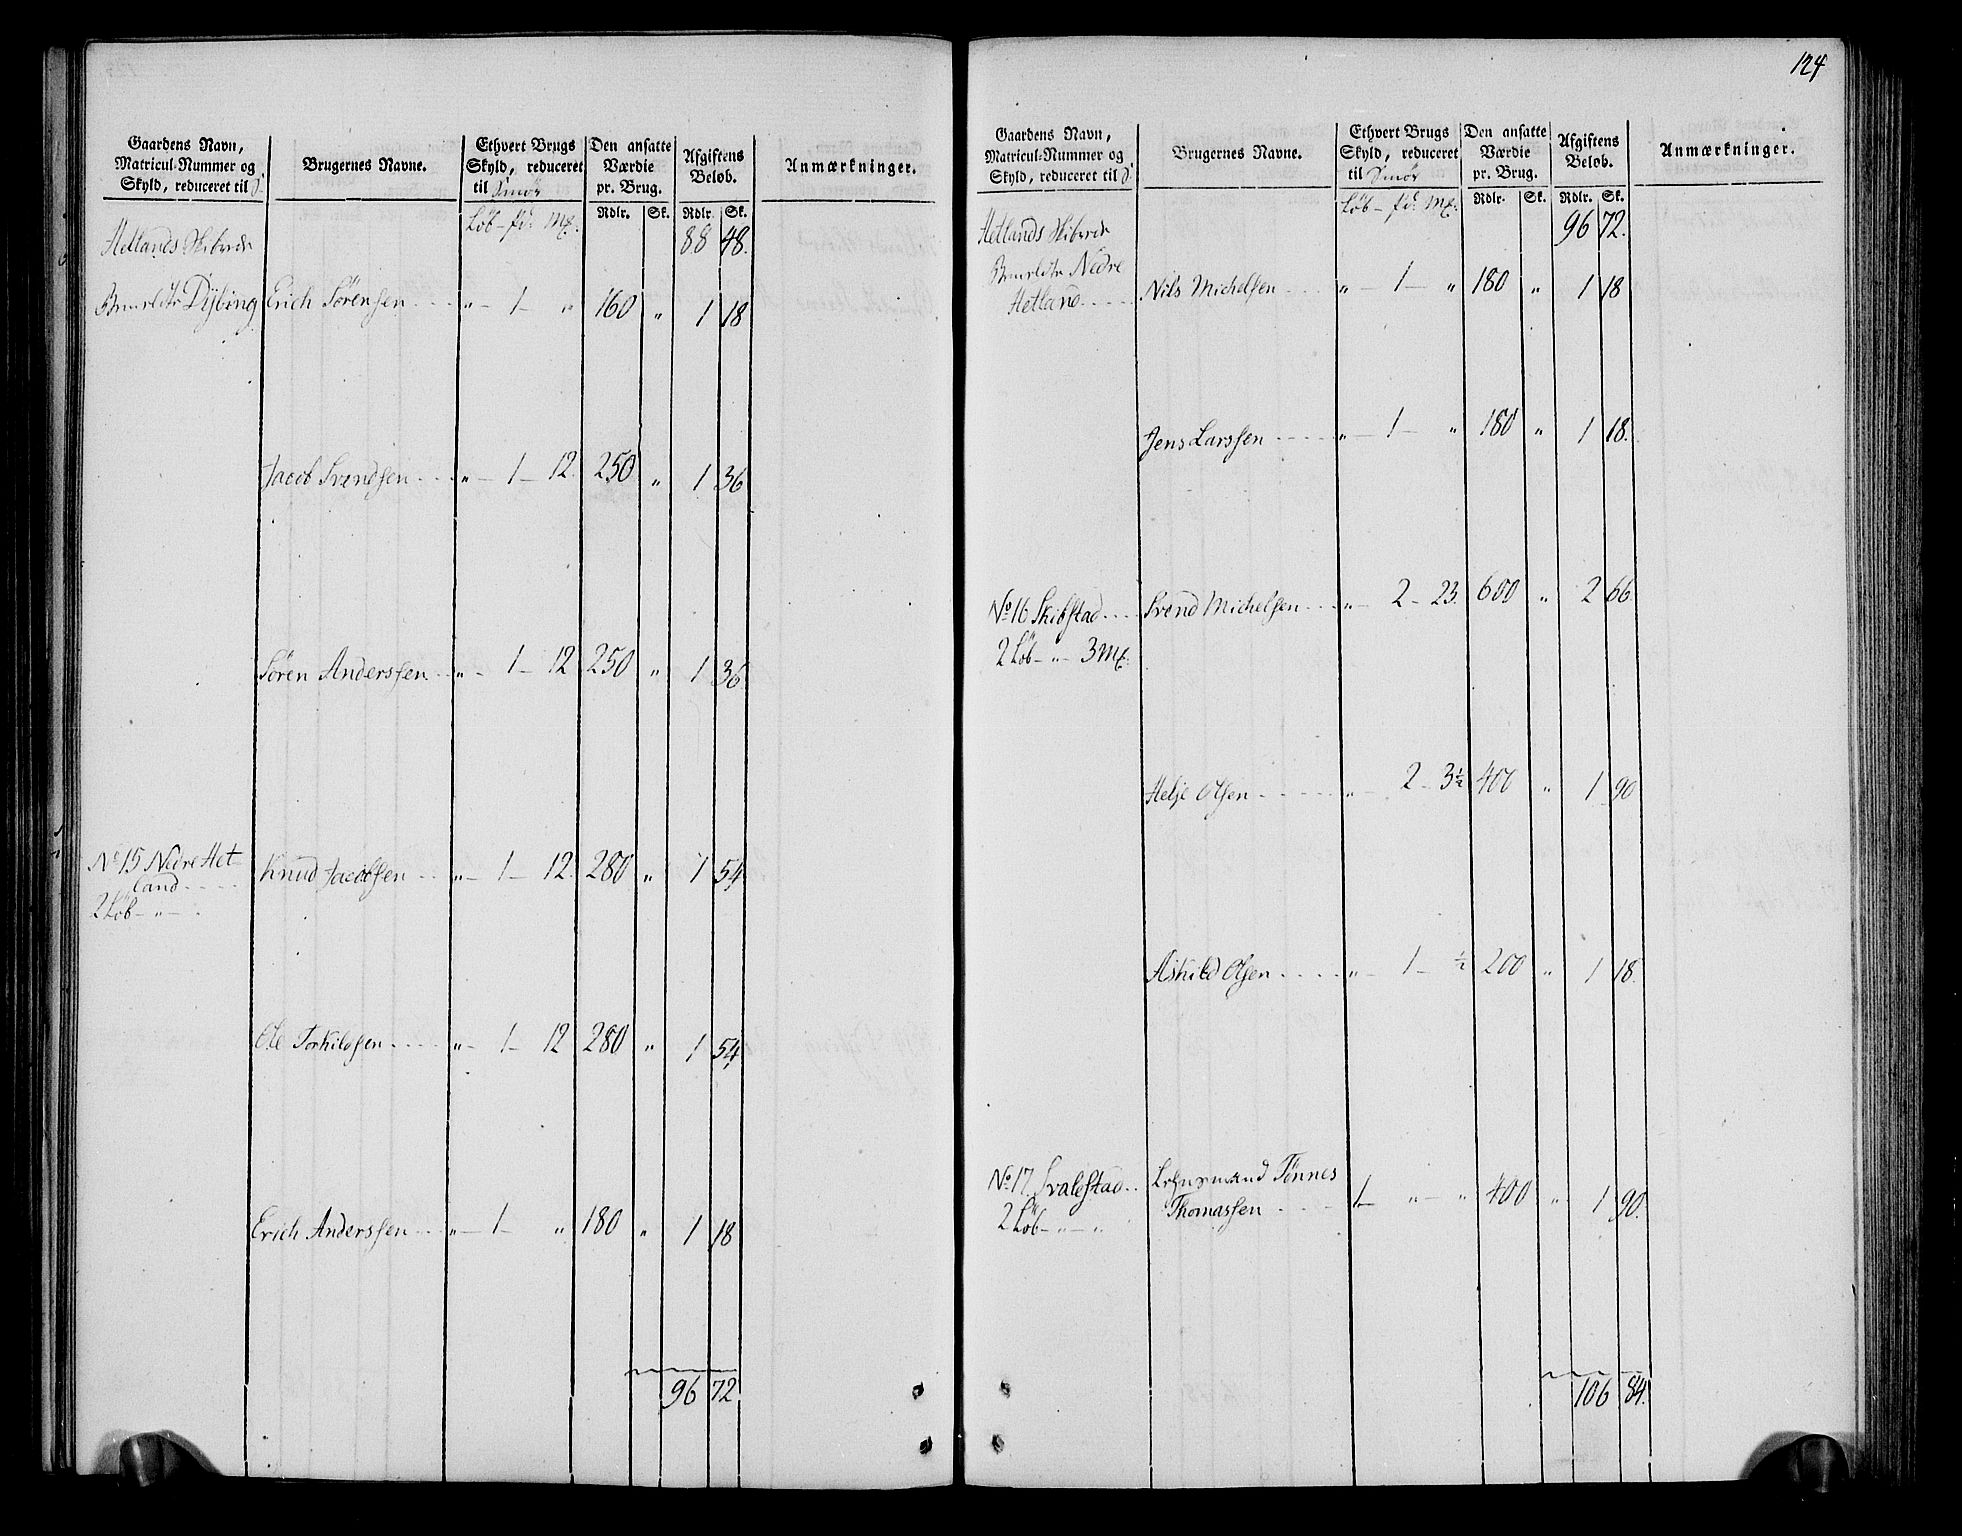 Gaardens Navn, Matricul-Nummer og Skyld, reduceret til
Brugernes Navne.
Ethvert Brugs Skyld, reduceret til Smör
Den ansatte Værdie pr. Brug.
Afgiftens Beløb.
Anmærkninger.
Löb - pd: Mk:
Rdlr. Sk. Rdlr. Sk.
Hetlands Skibrede 88 48.
Dÿbing Erich Sörensen .... " - 1 - " 160 " 1 18
Jacob Svendsen ... " - 1 - 12. 250 " 1 36
Sören Anderssen .. " - 1 - 12 250 " 1 36
No 15 Nedre Het- Knud Jacobsen .. " - 1 - 12. 280 " 1 54
land ....
2 Löb - " - .
Ole Torkildsen .... " - 1 - 12 280 " 1 54
Erich Anderssen ... " - 1 - " 180 " 1 18
96 72
124
Gaardens Navn, Matricul-Nummer og Skyld, reduceret til
Brugernes Navne.
Ethvert Brugs Skyld, reduceret til Smör
Den ansatte Værdie pr. Brug.
Afgiftens Beløb.
Anmærkninger.
Löb - pd: Mk:
Rdlr. Sk. Rdlr. Sk.
Hetlands Skibrede 96 72.
Nedre
Hetland .... Nils Michelsen .... " - 1 - " 180 " 1 18
Jens Larssen .... " - 1 - " 180 " 1 18.
No 16 Skibstad .... Svend Michelsen ... " - 2 - 23. 600 " 2 66
2 Löb - " - 3 Mk:
Helje Olsen .... " - 2 - 3½ 400 " 1 90
Askild Olsen .... " - 1 - ½ 200 " 1 18.
No 17 Svalestad .. Lehnsmand Tönnes
2 Löb - " - " Thomassen .... 1 - " - " 400 " 1 90.
106 84.